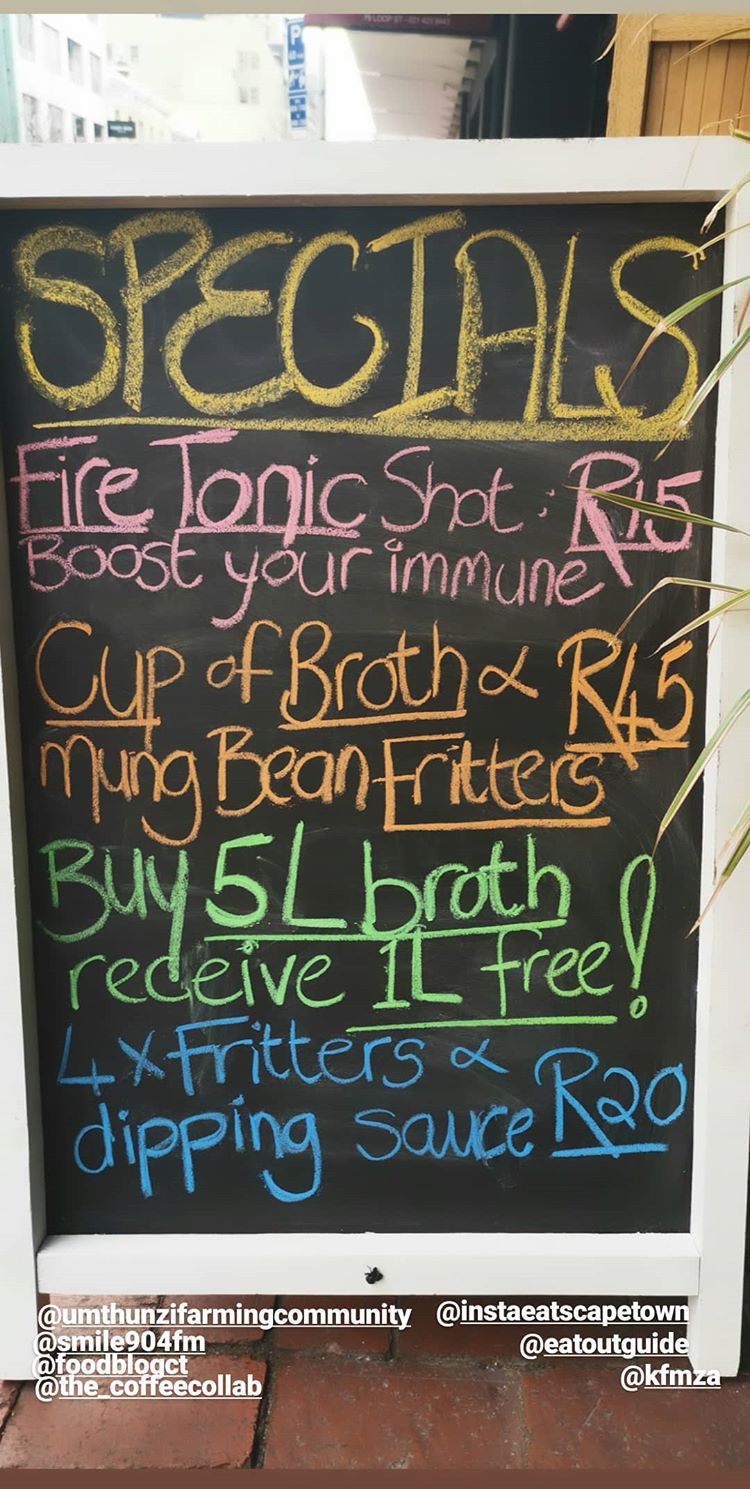 P
SPECIALS
Fire Tonic Shot : R15
Boost your immune
Cup of Broth & R45
Mung Bean Fritters
Buy 5L broth
receive 1L free!
4 x Fritters &
dipping sauce R20
@umthunzifarmingcommunity @instaeatscapetown
@smile904fm @eatoutguide
@foodblogct
@the_coffeecollab @kfmza